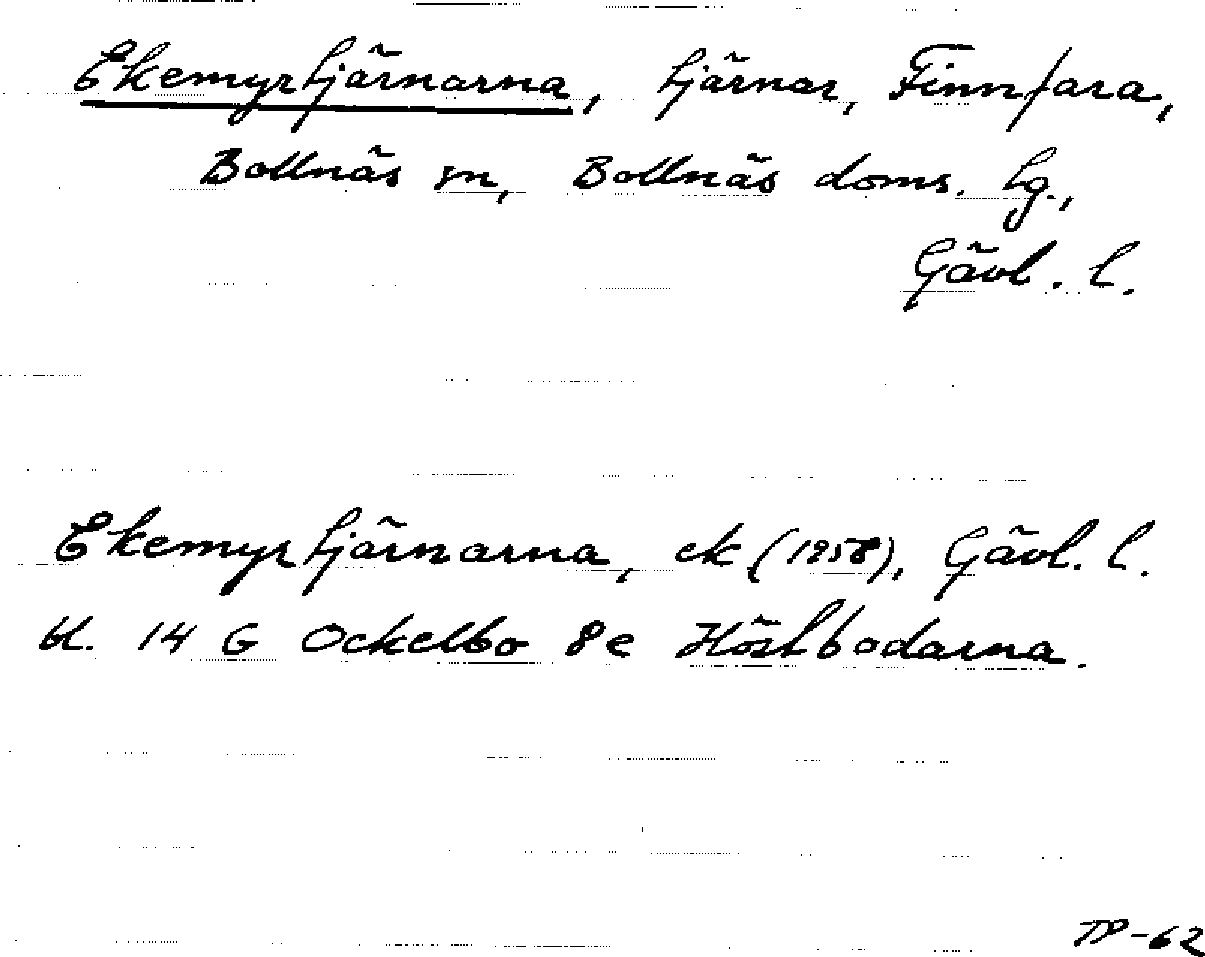 Ekemyrtjärnarna, tjärnar, Finnfara,
Bollnäs sn, Bollnäs doms. tg.,
Gävl. l.
Ekemyrtjärnarna, ek (1958), Gävl. l.
bl. 14 G Ockelbo 8e Höstbodarna.
TP-62